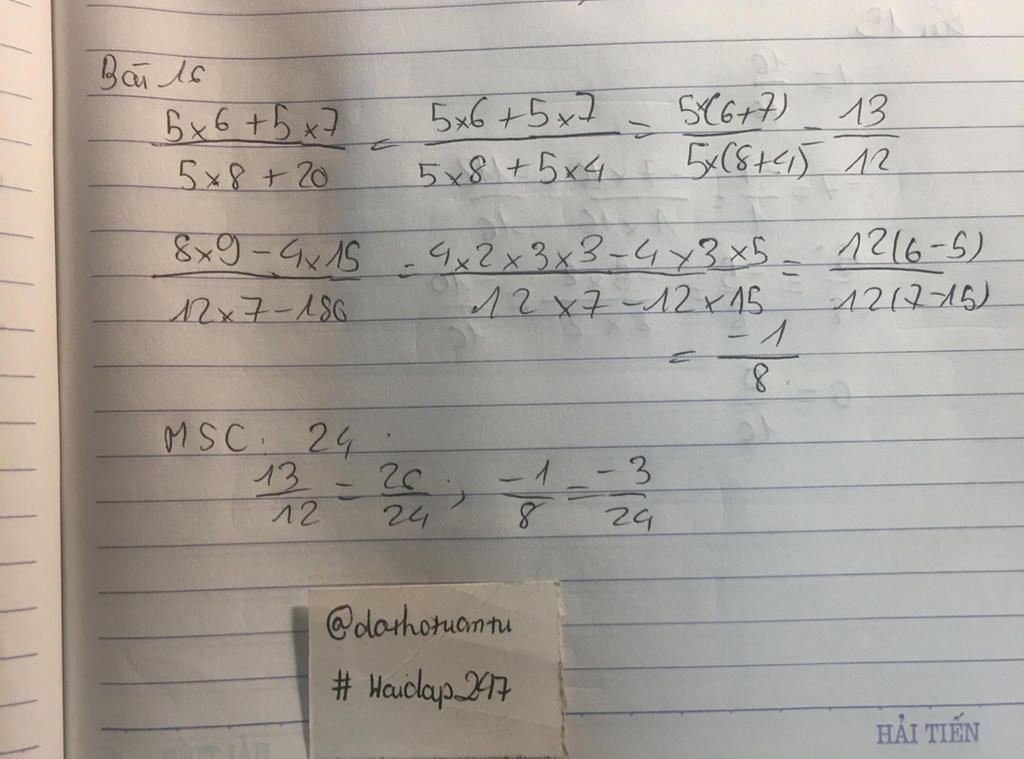 Bài 16
5×6+5×7/5×8+20 = 5×6+5×7/5×8+5×4 = 5×(6+7)/5×(8+4) = 13/12
8×9-4×15/12×7-186 = 4×2×3×3-4×3×5/12×7-12×15 = 12(6-5)/12(7-15)
= -1/8
MSC: 24.
13/12 = 26/24; -1/8 = -3/24
@dathotuantu
# Hoidap_247
HẢI TIẾN